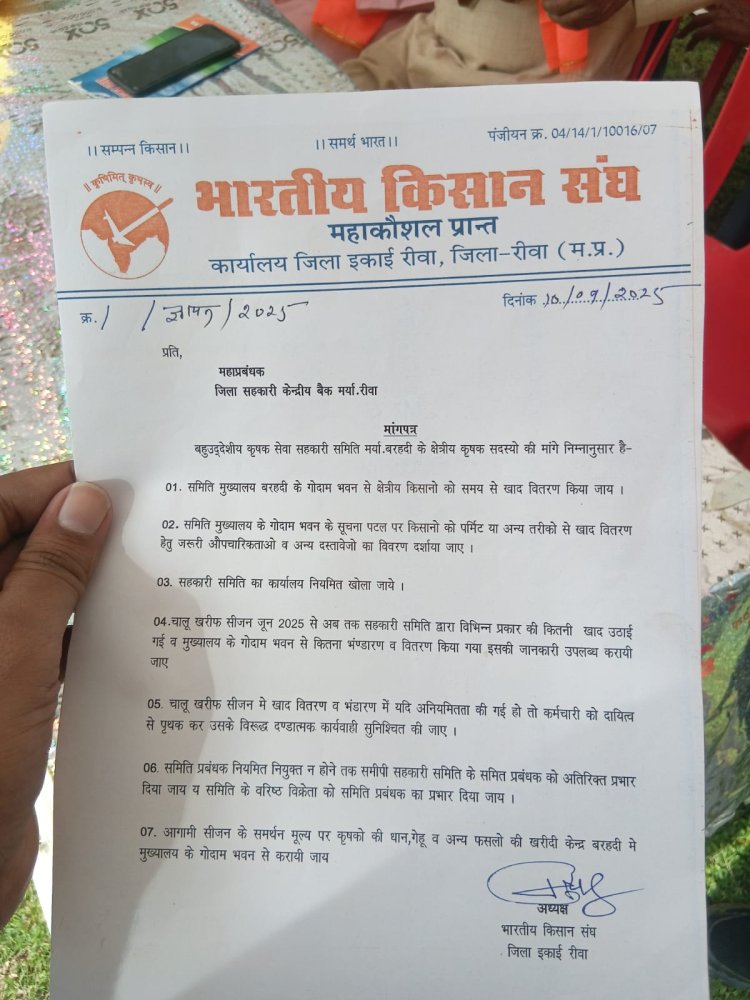 ।। सम्पन्न किसान।।
।। समर्थ भारत।।
पंजीयन क्र. 04/14/1/10016/07
॥ कृषिमित् कृषस्व ॥
भारतीय किसान संघ
महाकौशल प्रान्त
कार्यालय जिला इकाई रीवा, जिला-रीवा (म.प्र.)
क्र. / / ज्ञापन / 2025
दिनांक 10/09/2025
प्रति,
महाप्रबंधक
जिला सहकारी केन्द्रीय बैक मर्या.रीवा
मांगपत्र
बहुउद्देशीय कृषक सेवा सहकारी समिति मर्या.बरहदी के क्षेत्रीय कृषक सदस्यो की मांगे निम्नानुसार है-
01. समिति मुख्यालय बरहदी के गोदाम भवन से क्षेत्रीय किसानो को समय से खाद वितरण किया जाय ।
02. समिति मुख्यालय के गोदाम भवन के सूचना पटल पर किसानो को पर्मिट या अन्य तरीको से खाद वितरण
हेतु जरूरी औपचारिकताओ व अन्य दस्तावेजो का विवरण दर्शाया जाए ।
03. सहकारी समिति का कार्यालय नियमित खोला जाये ।
04.चालू खरीफ सीजन जून 2025 से अब तक सहकारी समिति द्वारा विभिन्न प्रकार की कितनी खाद उठाई
गई व मुख्यालय के गोदाम भवन से कितना भंण्डारण व वितरण किया गया इसकी जानकारी उपलब्ध करायी
जाए
05. चालू खरीफ सीजन मे खाद वितरण व भंडारण में यदि अनियमितता की गई हो तो कर्मचारी को दायित्व
से पृथक कर उसके विरूद्ध दण्डात्मक कार्यवाही सुनिश्चित की जाए ।
06. समिति प्रबंधक नियमित नियुक्त न होने तक समीपी सहकारी समिति के समित प्रबंधक को अतिरिक्त प्रभार
दिया जाय य समिति के वरिष्ठ विक्रेता को समिति प्रबंधक का प्रभार दिया जाय ।
07. आगामी सीजन के समर्थन मूल्य पर कृषको की धान,गेहू व अन्य फसलो की खरीदी केन्द्र बरहदी मे
मुख्यालय के गोदाम भवन से करायी जाय
अध्यक्ष
भारतीय किसान संघ
जिला इकाई रीवा